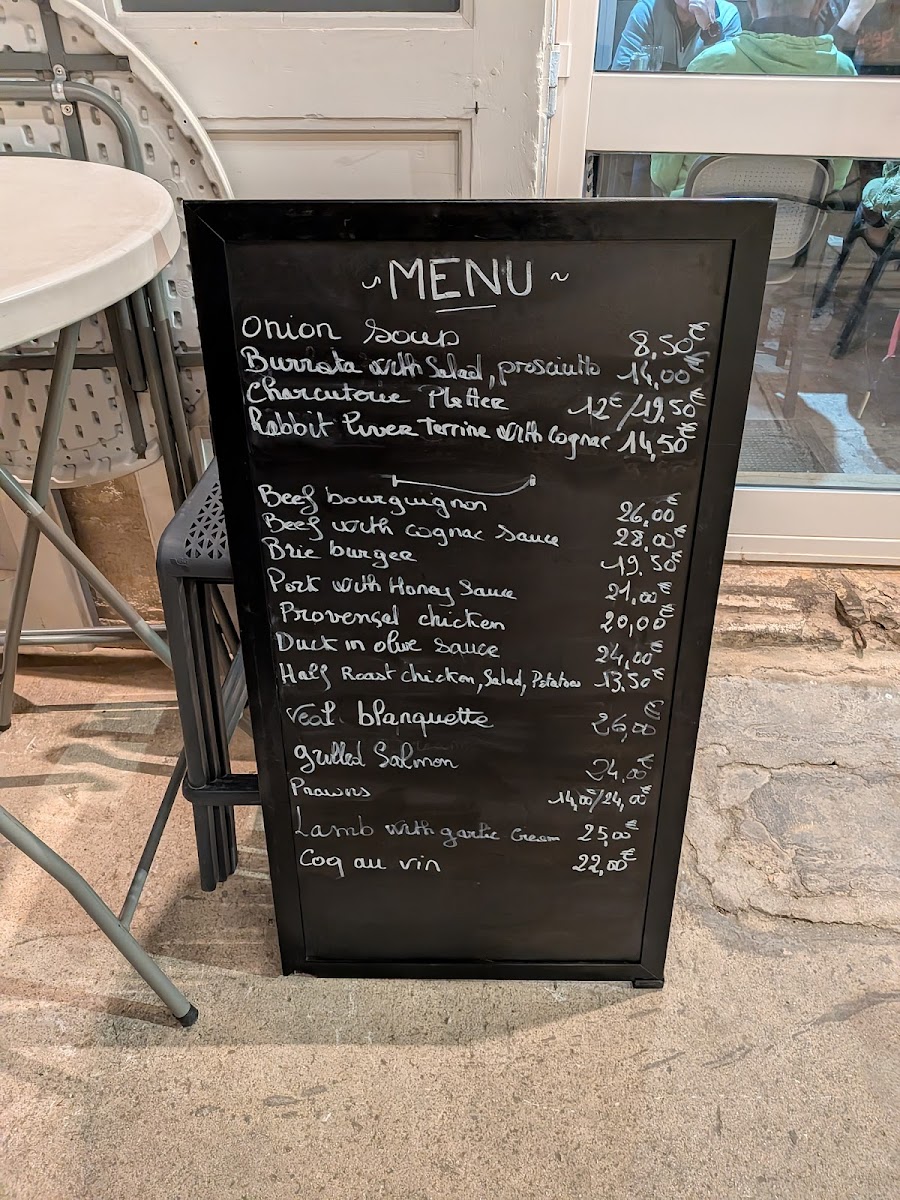 ~ MENU ~
Onion Soup 8,50€
Burrata with Salad, prosciutto 14,00€
Charcuterie Platter 12€/19,50€
Rabbit liver terrine with Cognac 14,50€
Beef bourguignon 26,00€
Beef with cognac sauce 28,00€
Brie burger 19,50€
Pork with Honey Sauce 21,00€
Provensal chicken 20,00€
Duck in olive sauce 24,00€
Half Roast chicken, Salad, Potatoes 13,50€
Veal blanquette 26,00€
Grilled Salmon 24,00€
Prawns 14,00/24,00€
Lamb with garlic Cream 25,00€
Coq au vin 22,00€